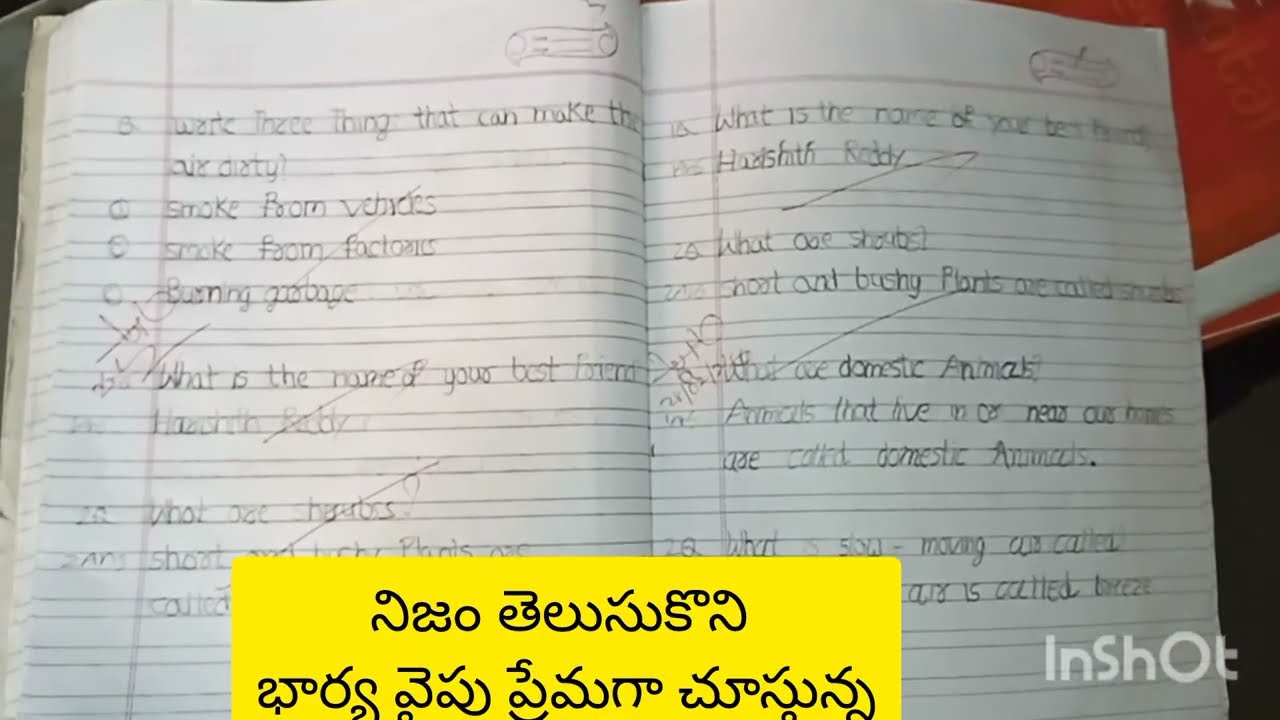 3. write Three Things that can make the
air dirty?
a smoke from vehicles
b smoke from factories
c Burning garbage
What is the name of your best friend
Harishith Reddy
2Q What are shrubss?
2Ans short and bushy Plants are
called
1Q What is the name of your best friend
Ans Harishith Reddy
2Q What are shrubs?
2Ans short and bushy Plants are called shrubs
What are domestic Animals?
Ans Animals that live in or near our homes
are called domestic Animals.
2Q What is slow - moving air called?
air is called breeze
నిజం తెలుసుకొని
భార్య వైపు ప్రేమగా చూస్తున్న
InShOt